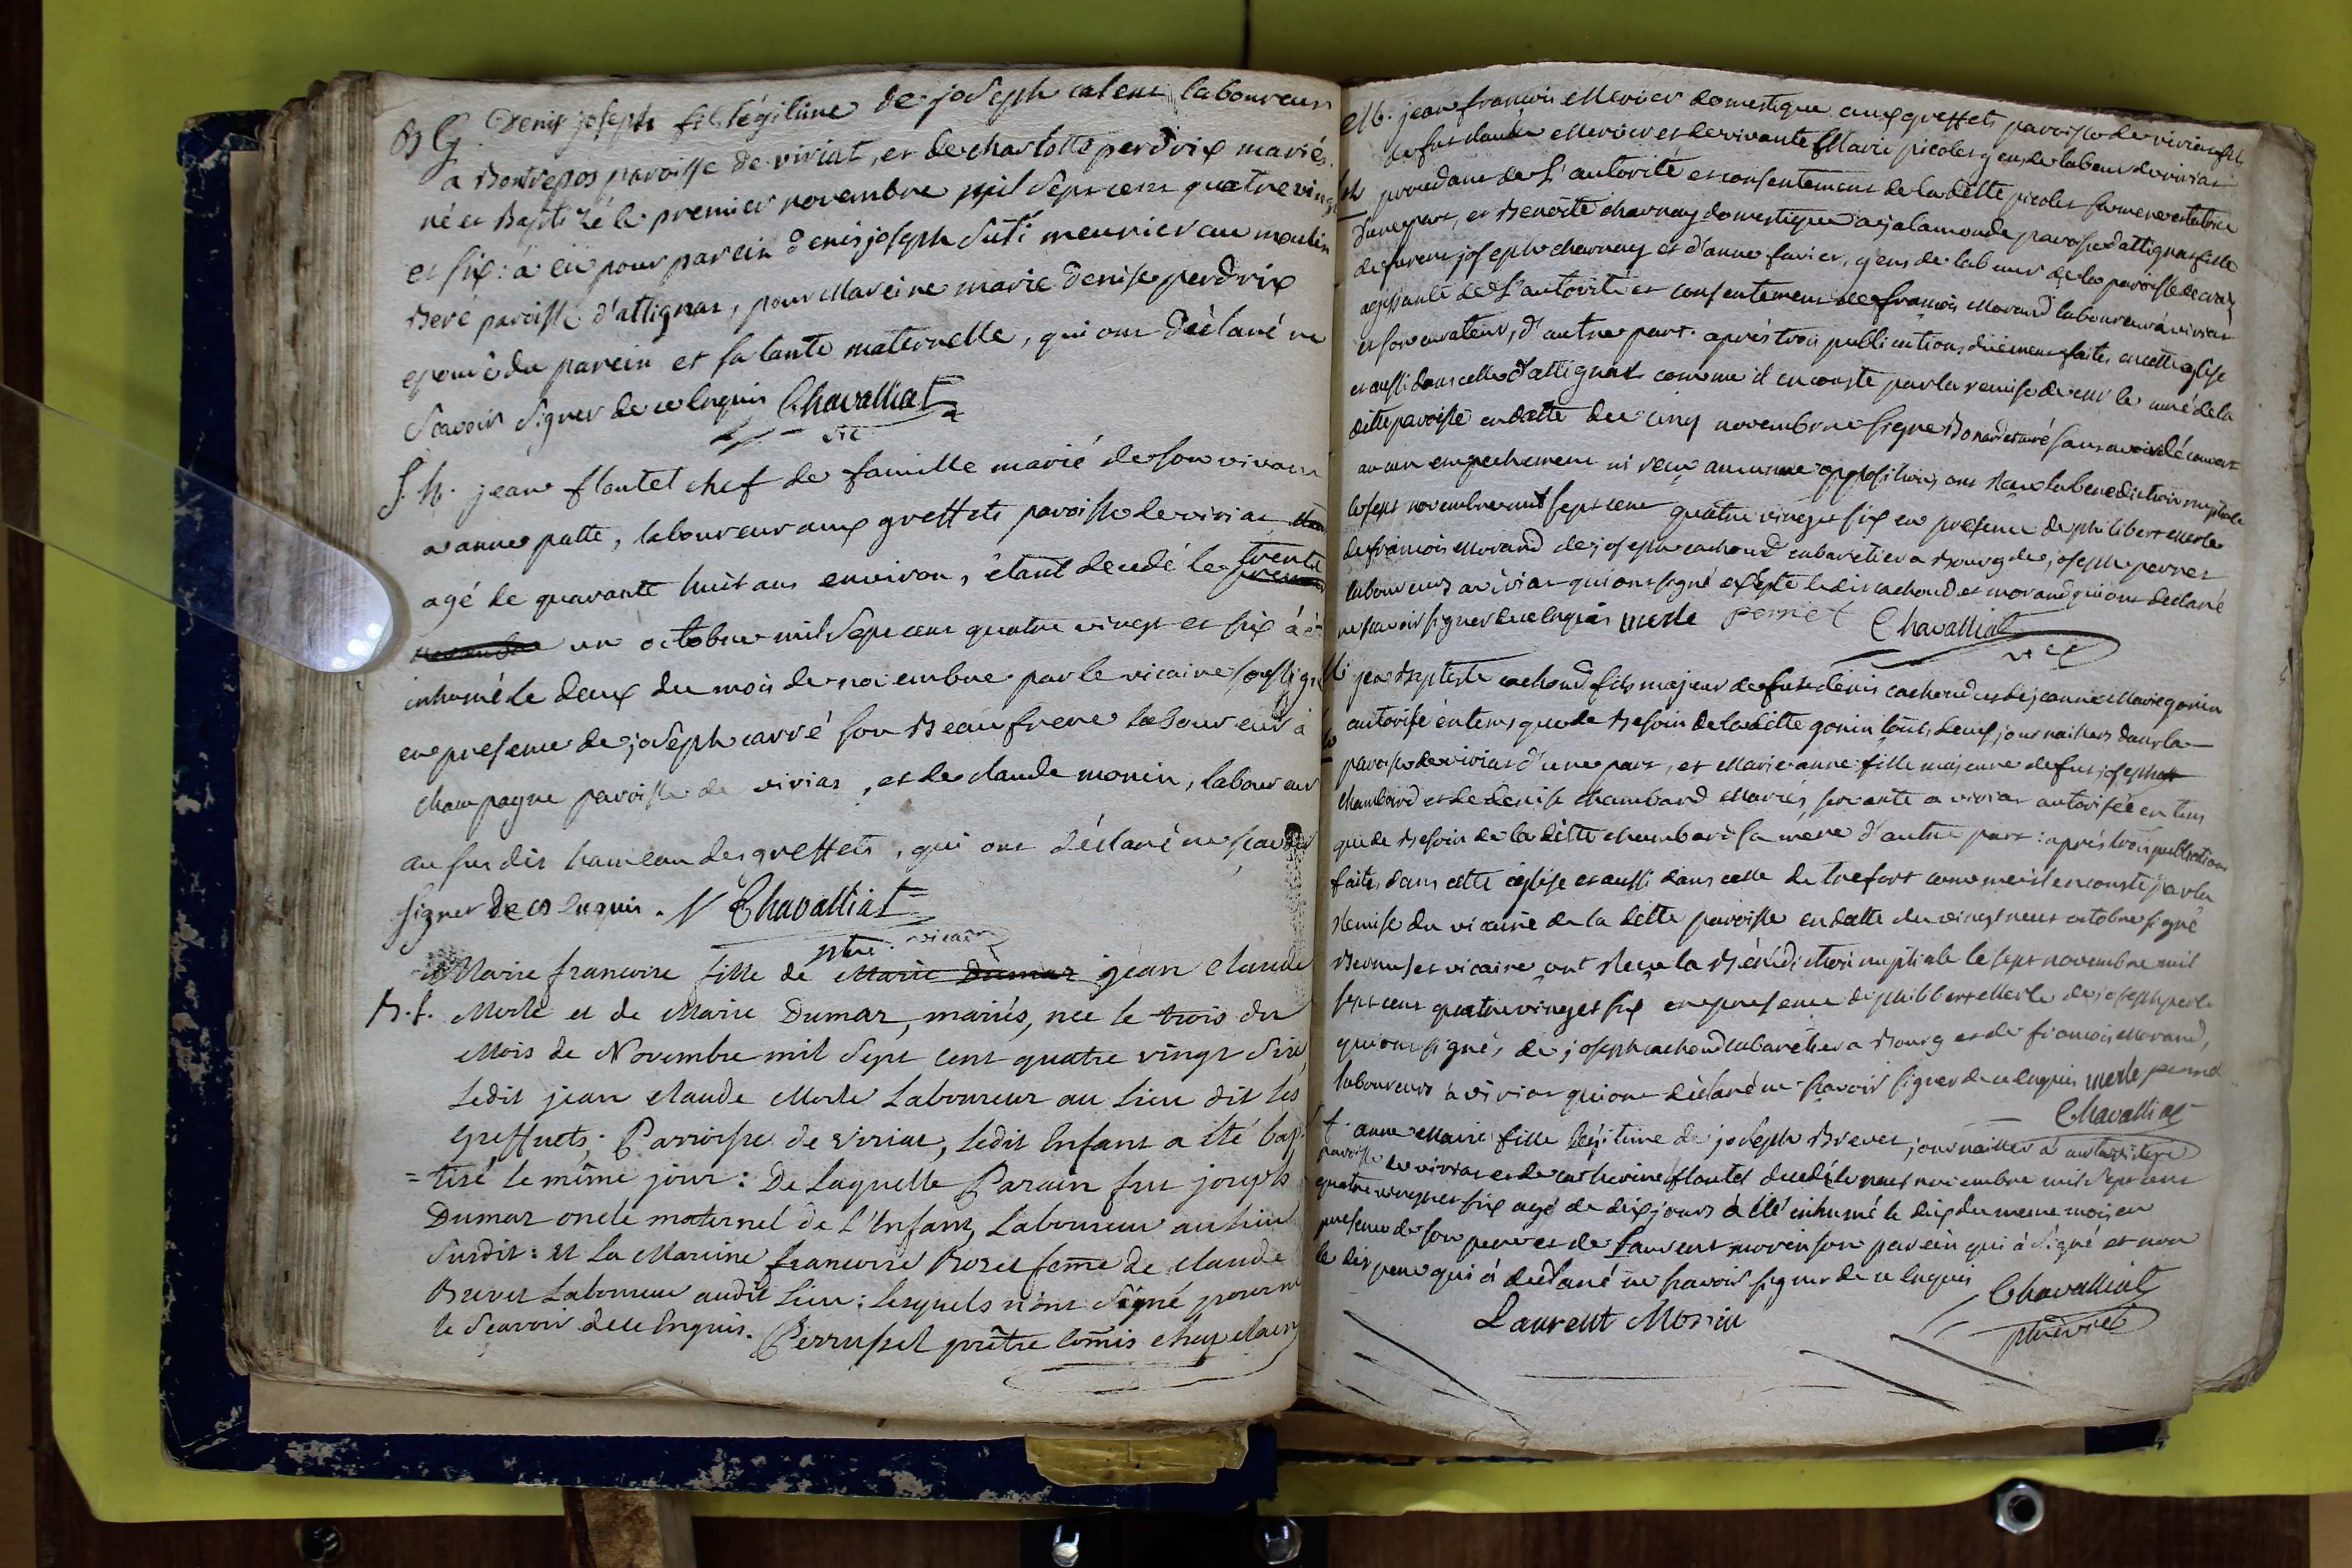 B G Denis joseph fils légitime de joseph calene laboureur
a Bontrepos paroisse de viriat, et de charlotte perdrix mariés
né et Baptizé le premier novembre mil sept cens quatre vingt
et six : a eu pour parein denis joseph suti meunier au moulin
Beré paroisse d'attignat, pour Mareine marie denise perdrix
epouse du parein et sa tante maternelle, qui ont déclaré ne
scavoir signer de ce enquis Chavalliat
vic
S. h. jean floutet chef de famille marié de son vivant
a anne patte, laboureur aux greffets paroisse de viriat
agé de quarante huit ans environ, étant decedé le trente
un octobre mil sept cens quatre vingt et six à été
inhumé le deux du mois de novembre par le vicaire soussigné
en presence de joseph carré son Beaufrere laboureur à
champagne paroisse de viriat, et de claude monin, laboureur
au susdit hameau des greffets, qui ont déclaré ne scavoir
signer de ce enquis. Chavalliat
ptre. vicaire
Marie francoise fille de Marie Dumas jean claude
B. f. Merle et de Marie Dumas, mariés, née le trois du
Mois de Novembre mil sept cent quatre vingt six,
Ledit jean claude Merle Laboureur au Lieu dit les
Greffets ; Parroisse de viriat, ledit Enfant a été bap
= tisé le même jour : De Laquelle Parain fut joseph
Dumas oncle maternel de l'Enfant, Laboureur au lieu
susdit : et La Maraine francoise Rozet feme de claude
Brevet Laboureur audit Lieu : lesquels n'ont signé pour ne
le scavoir de ce Enquis. Perrussel prêtre comis
M. jean francois Merier domestique aux greffets paroisse de viriat fils
de fut claude Merier et de vivante Marie picolet gens de labeur de viriat
procedant de L'autorité et consentement de la ditte picolet sa mere
d'une part, et Benoîte charnay domestique a jalamonde paroisse d'attignat fille
de joseph charnay et d'anne favier, gens de labeur de la paroisse de
agissante de L'autorité et consentement de francois Morand laboureur à viriat
et son curateur, d'autre part. après trois publications düement faites en cette église
et aussi dans celle d'attignat comme il en conste par la remise de mr le curé de la
ditte paroisse en datte du cinq novembre signé Bonard curé sans avoir découvert
aucun empechement ni reçu aucune opposition, ont reçu la benediction nuptiale
le sept novembre mil sept cens quatre vingt et six en presence de philibert merle
de francois Morand de joseph cachoud cabaretier a Bourg de joseph pernet
laboureurs a viriat qui ont signé excepté ledit cachoud et morand qui ont declaré
ne scavoir signer de ce enquis merle pernet Chavalliat
vic
jean Baptiste cachoud fils majeur de fut denis cachoud et de jeanne Marie gonin
autorisé en tems que de Besoin de la ditte gonin tous deux journailliers dans la
paroisse de viriat d'une part, et Marie anne fille majeure de fut joseph
chambard et de denise chambard Mariés, servante a viriat autorisée en tems
que de Besoin de la ditte chambard sa mere d'autre part : après trois publications
faites dans cette église et aussi dans celle de trefort comme il en conste par la
Remise du vicaire de la ditte paroisse en datte du vingt neuf octobre signé
vicaire ont Reçu la Bénédiction nuptiale le sept novembre mil
sept cens quatre vingt et six en presence de philibert Merle de joseph pernet
qui ont signé, de joseph cachoud cabaretier a Bourg et de francois Morand,
laboureurs à viriat qui ont déclaré ne scavoir signer de ce enquis merle pernet
Chavalliat
f. anne Marie fille légitime de joseph Brevet journaillier à
paroisse de viriat et de catherine floutet decedée le neuf novembre mil sept cens
quatre vingt et six agé de dix jours à été inhumé le dix du meme mois en
presence de son pere et de Laurent morin son parein qui à signé et non
le dit pere qui à declaré ne scavoir signer de ce enquis
Laurent Morin
Chavalliat
ptre vic